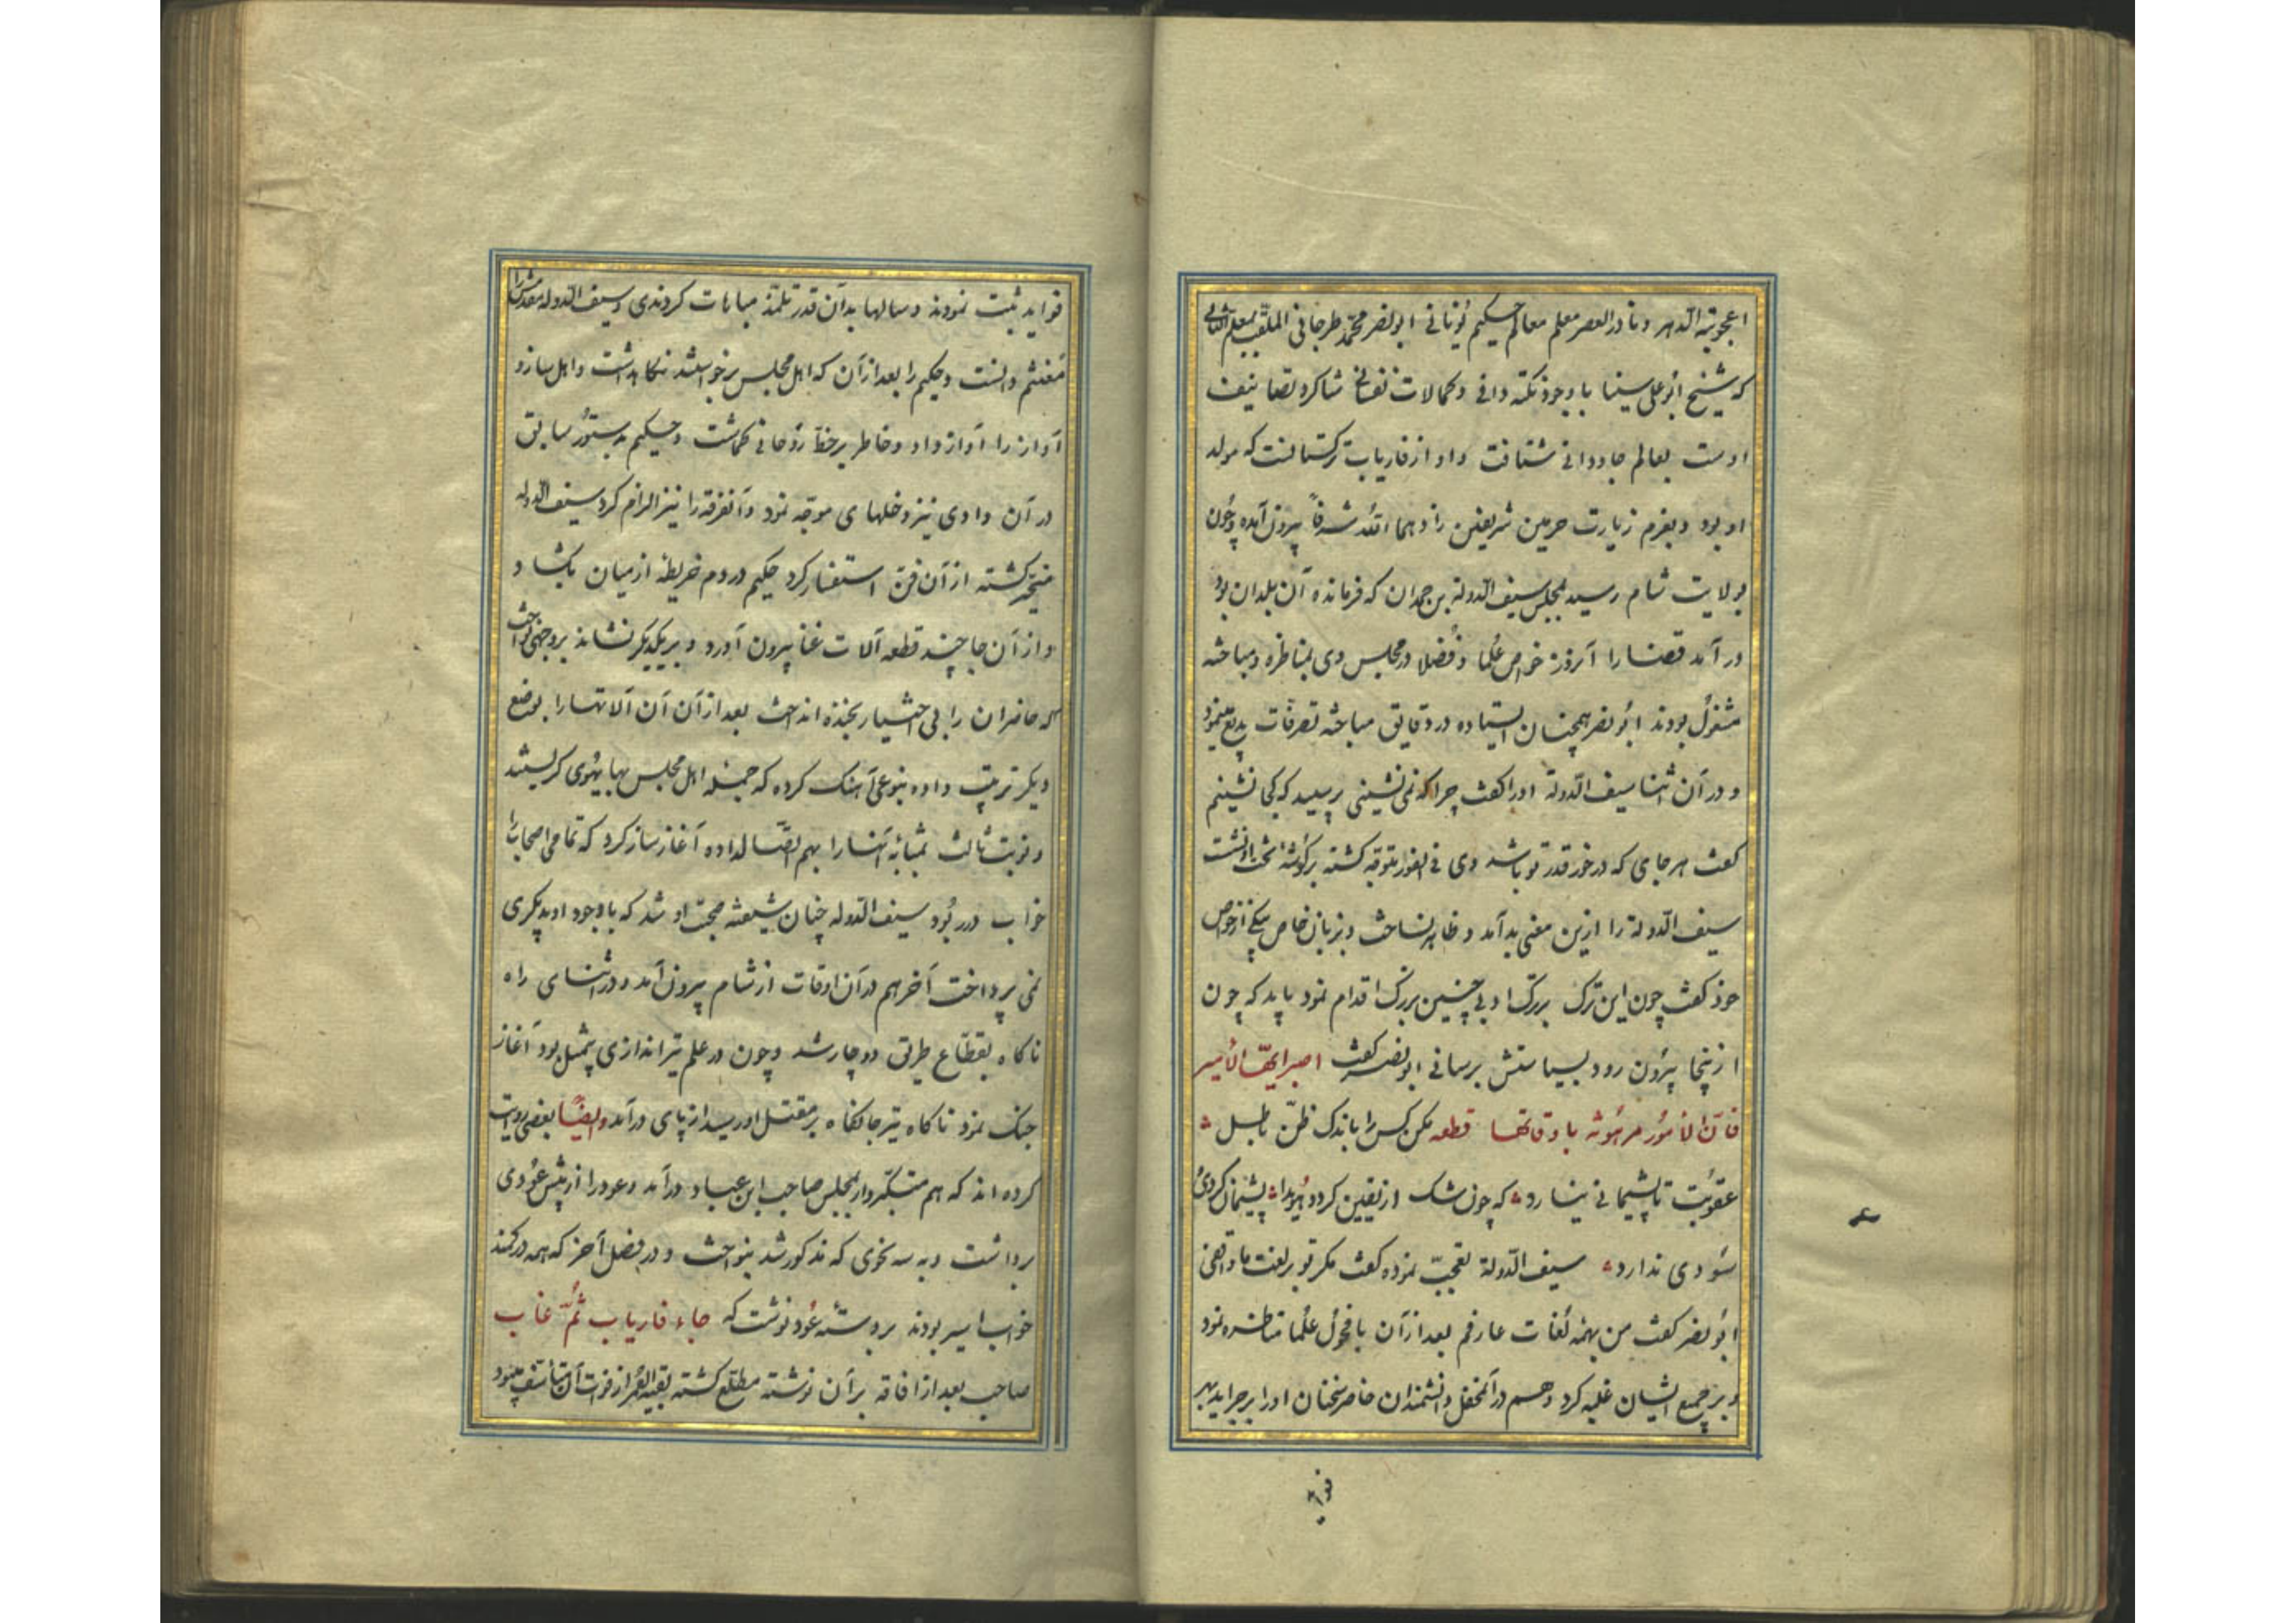 اعجوبة الدهر و نادر العصر معلم معالم حکیم یونانی ابو نصر محمد طرخانی الملقب بمعلم الثانی
که شیخ ابو علی سینا با وجود نکته دانی و کمالات نفسانی شاکرد تصانیف
اوست بعالم جاودانی شتافت و او از فاریاب ترکستانست که مولد
او بود و بعزم زیارت حرمین شریفین زادهما الله شرفاً بیرون آمده و چون
بولایت شام رسید بمجلس سیف الدولة بن حمدان که فرمانده آن بلدان بود
در آمد قضا را آنروز خواص علما و فضلا در مجلس وی بمناظره و مباحثه
مشغول بودند ابو نصر همچنان ایستاده در دقایق مباحثه تصرفات بدیع مینمود
و در آن اثنا سیف الدولة او را کفت چرا که نمی نشینی پرسید که کجا نشینم
کفت هر جای که در خور قدر تو باشد وی فی الفور متوجه کشته بر کوشه تخت او نشست
سیف الدولة را ازین معنی بد آمد و ظاهر نساخت و بزبان خاص بیکی از خواص
خود کفت چون این ترک بزرک او بی چنین بزرک اقدام نمود باید که چون
ازینجا بیرون رود بسیاستش برسانی ابو نصر کفت اصبر ایها الامیر
فان الامور مرهونة باوقاتها قطعه مکن کس را باندک ظن باطل
عقوبت تا پشیمانی نیارد که چون شک از یقین کردد هویدا پشیمان کردی و
سودی ندارد سیف الدولة تعجب نموده کفت مکر تو بر لغت ما واقفی
ابو نصر کفت من بهمه لغات عارفم بعد از آن با فحول علما مناظره نمود
و بر جمیع ایشان غلبه کرد و هم در آن محفل دانشمندان حاضر سخنان او را بر جراید بهر
فواید
فواید ثبت نمودند و سالها بدان قدر تلمذ مباهات کردندی و سیف الدوله مقدمش را
مغتنم دانست و حکیم را بعد از آن که اهل مجلس برخواستند نکاهداشت و اهل ساز و
آواز را آواز داد و خاطر بر حظ روحانی کماشت و حکیم بدستور سابق
در آن وادی نیز دخلهای موجه نمود و آنفرقه را نیز الزام کرد سیف الدوله
متحیر کشته از آن فن استفسار کرد حکیم در دم خریطه از میان بکشاد
و از آن جا چند قطعه آلات غنا بیرون آورد و بر یکدیکر نشاند بر وجهی نواخت
که حاضران را بی اختیار بخنده انداخت بعد از آن آن آلاتها را بوضع
دیکر ترتیب داده بنوعی آهنک کرده که جمله اهل مجلس بهایهوی کریستند
و نوبت ثالث بمثابه آنها را بهم اتصال داده آغاز ساز کرد که تمامی اصحاب را
خواب در ربود سیف الدوله چنان شیفته صحبت او شد که با وجود او بدیکری
نمی پرداخت آخر هم در آن اوقات از شام بیرون آمد و در اثنای راه
ناکاه بقطاع طریق دوچار شد و چون در علم تیر اندازی بیمثل بود آغاز
جنک نمود ناکاه تیر جانکاه بر مقتل او رسید از پای در آمد و ایضاً بعضی روایت
کرده اند که هم متنکر وار بمجلس صاحب ابن عباد در آمد و عود را از پیش عودی
برداشت و به سه نحوی که مذکور شد بنواخت و در فصل آخر که همه در کمند
خواب اسیر بودند بر دسته عود نوشت که جاء فاریاب ثم غاب
صاحب بعد از افاقه بر آن نوشته مطلع کشته بقیة العمر از فوت آن تأسف مینمود